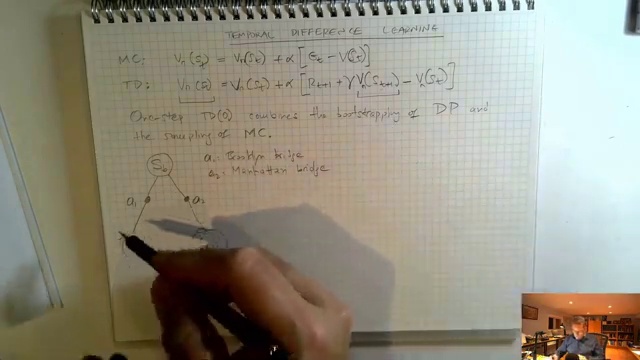 TEMPORAL DIFFERENCE LEARNING
MC: Vπ(St) = Vπ(St) + α [Gt − V(St)]
TD: Vπ(St) = Vπ(St) + α [Rt+1 + γ Vπ(St+1) − Vπ(St)]
One-step TD(0) combines the bootstrapping of DP and
the sampling of MC.
a1: Brooklyn bridge
a2: Manhattan bridge
St
a1 a2